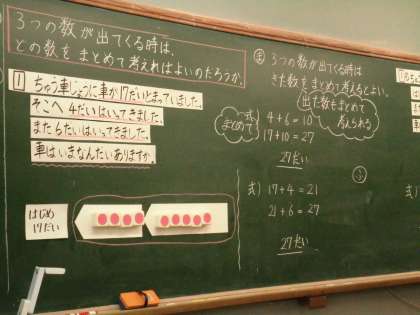 3つの数が出てくる時は、
どの数をまとめて考えればよいのだろうか。
1 ちゅう車じょうに車が17だいとまっていました。
そこへ 4だいはいってきました。
また6だいはいってきました。
車はいまなんだいありますか。
はじめ
17だい
ま 3つの数が出てくる時は
きた数をまとめて考えるとよい。
出た数もまとめて
考えられる
まとめて
式) 4+6=10
17+10=27
27だい
式) 17+4=21
21+6=27
27だい
ふ